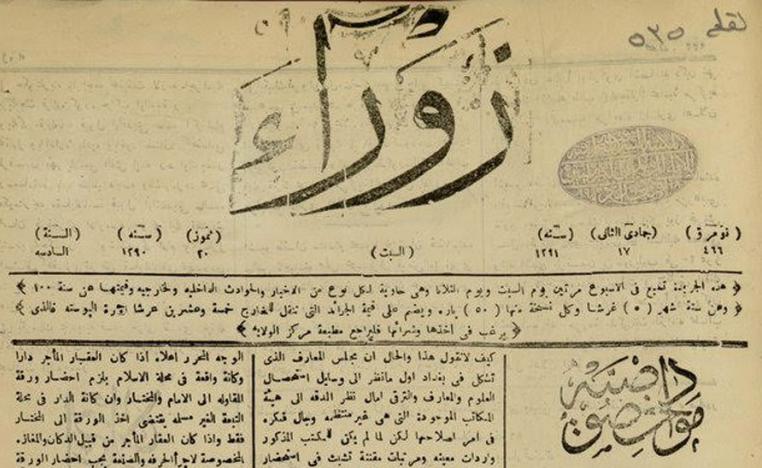 زوراء
( نومرو ) ( جمادى الثانى ) ( سنه ) ( السبت ) ( تموز ) ( سنه ) ( السنة )
٤٦٦ ١٧ ١٢٩١ ٢٠ ١٢٩٠ السادسه
هذه الجريدة تطبع فى الاسبوع مرتين يوم السبت ويوم الثلاثا وهى حاوية لكل نوع من الاخبار والحوادث الداخليه والخارجيه وقيمتها عن سنة ١٠٠
وعن ستة شهر ( ٥٠ ) غرشا وكل نسخة منها ( ٥٠ ) پاره ويضم على قيمة الجرائد التى تنقل للخارج خمسة وعشرين غرشا اجرة البوسته فالذى
يرغب فى أخذها وشرائها فليراجع مطبعة مركز الولايه
مواد خصوصيه
كيف لانقول هذا والحال ان مجلس المعارف الذى
تشكل فى بغداد اول مانظر الى وسايل استحصال
العلوم والمعارف والترقى امال نظر الدقه الى هيئة
المكاتب الموجودة التى هى غير منتظمه وبيال فكره
فى امر اصلاحها لكن لما لم يكن للمكتب المذكور
واردات معينه ومرتبات مقننة تشبث فى استحضار
الوجه المحرر اعلاه اذا كان العقار المأجر دارا
وكانة واقعة فى محلة الاسلام يلزم احضار ورقة
المقاوله الى الامام والمختار وان كانة الدار فى محلة
التبعة الغير مسلمه يقتضى اخذ الورقة الى المختار
فقط واذا كان العقار المأجر من قبيل الدكان والمغازه
المخصوصة لاجرأ الحرفه والصنعة يجب احضار الورقة